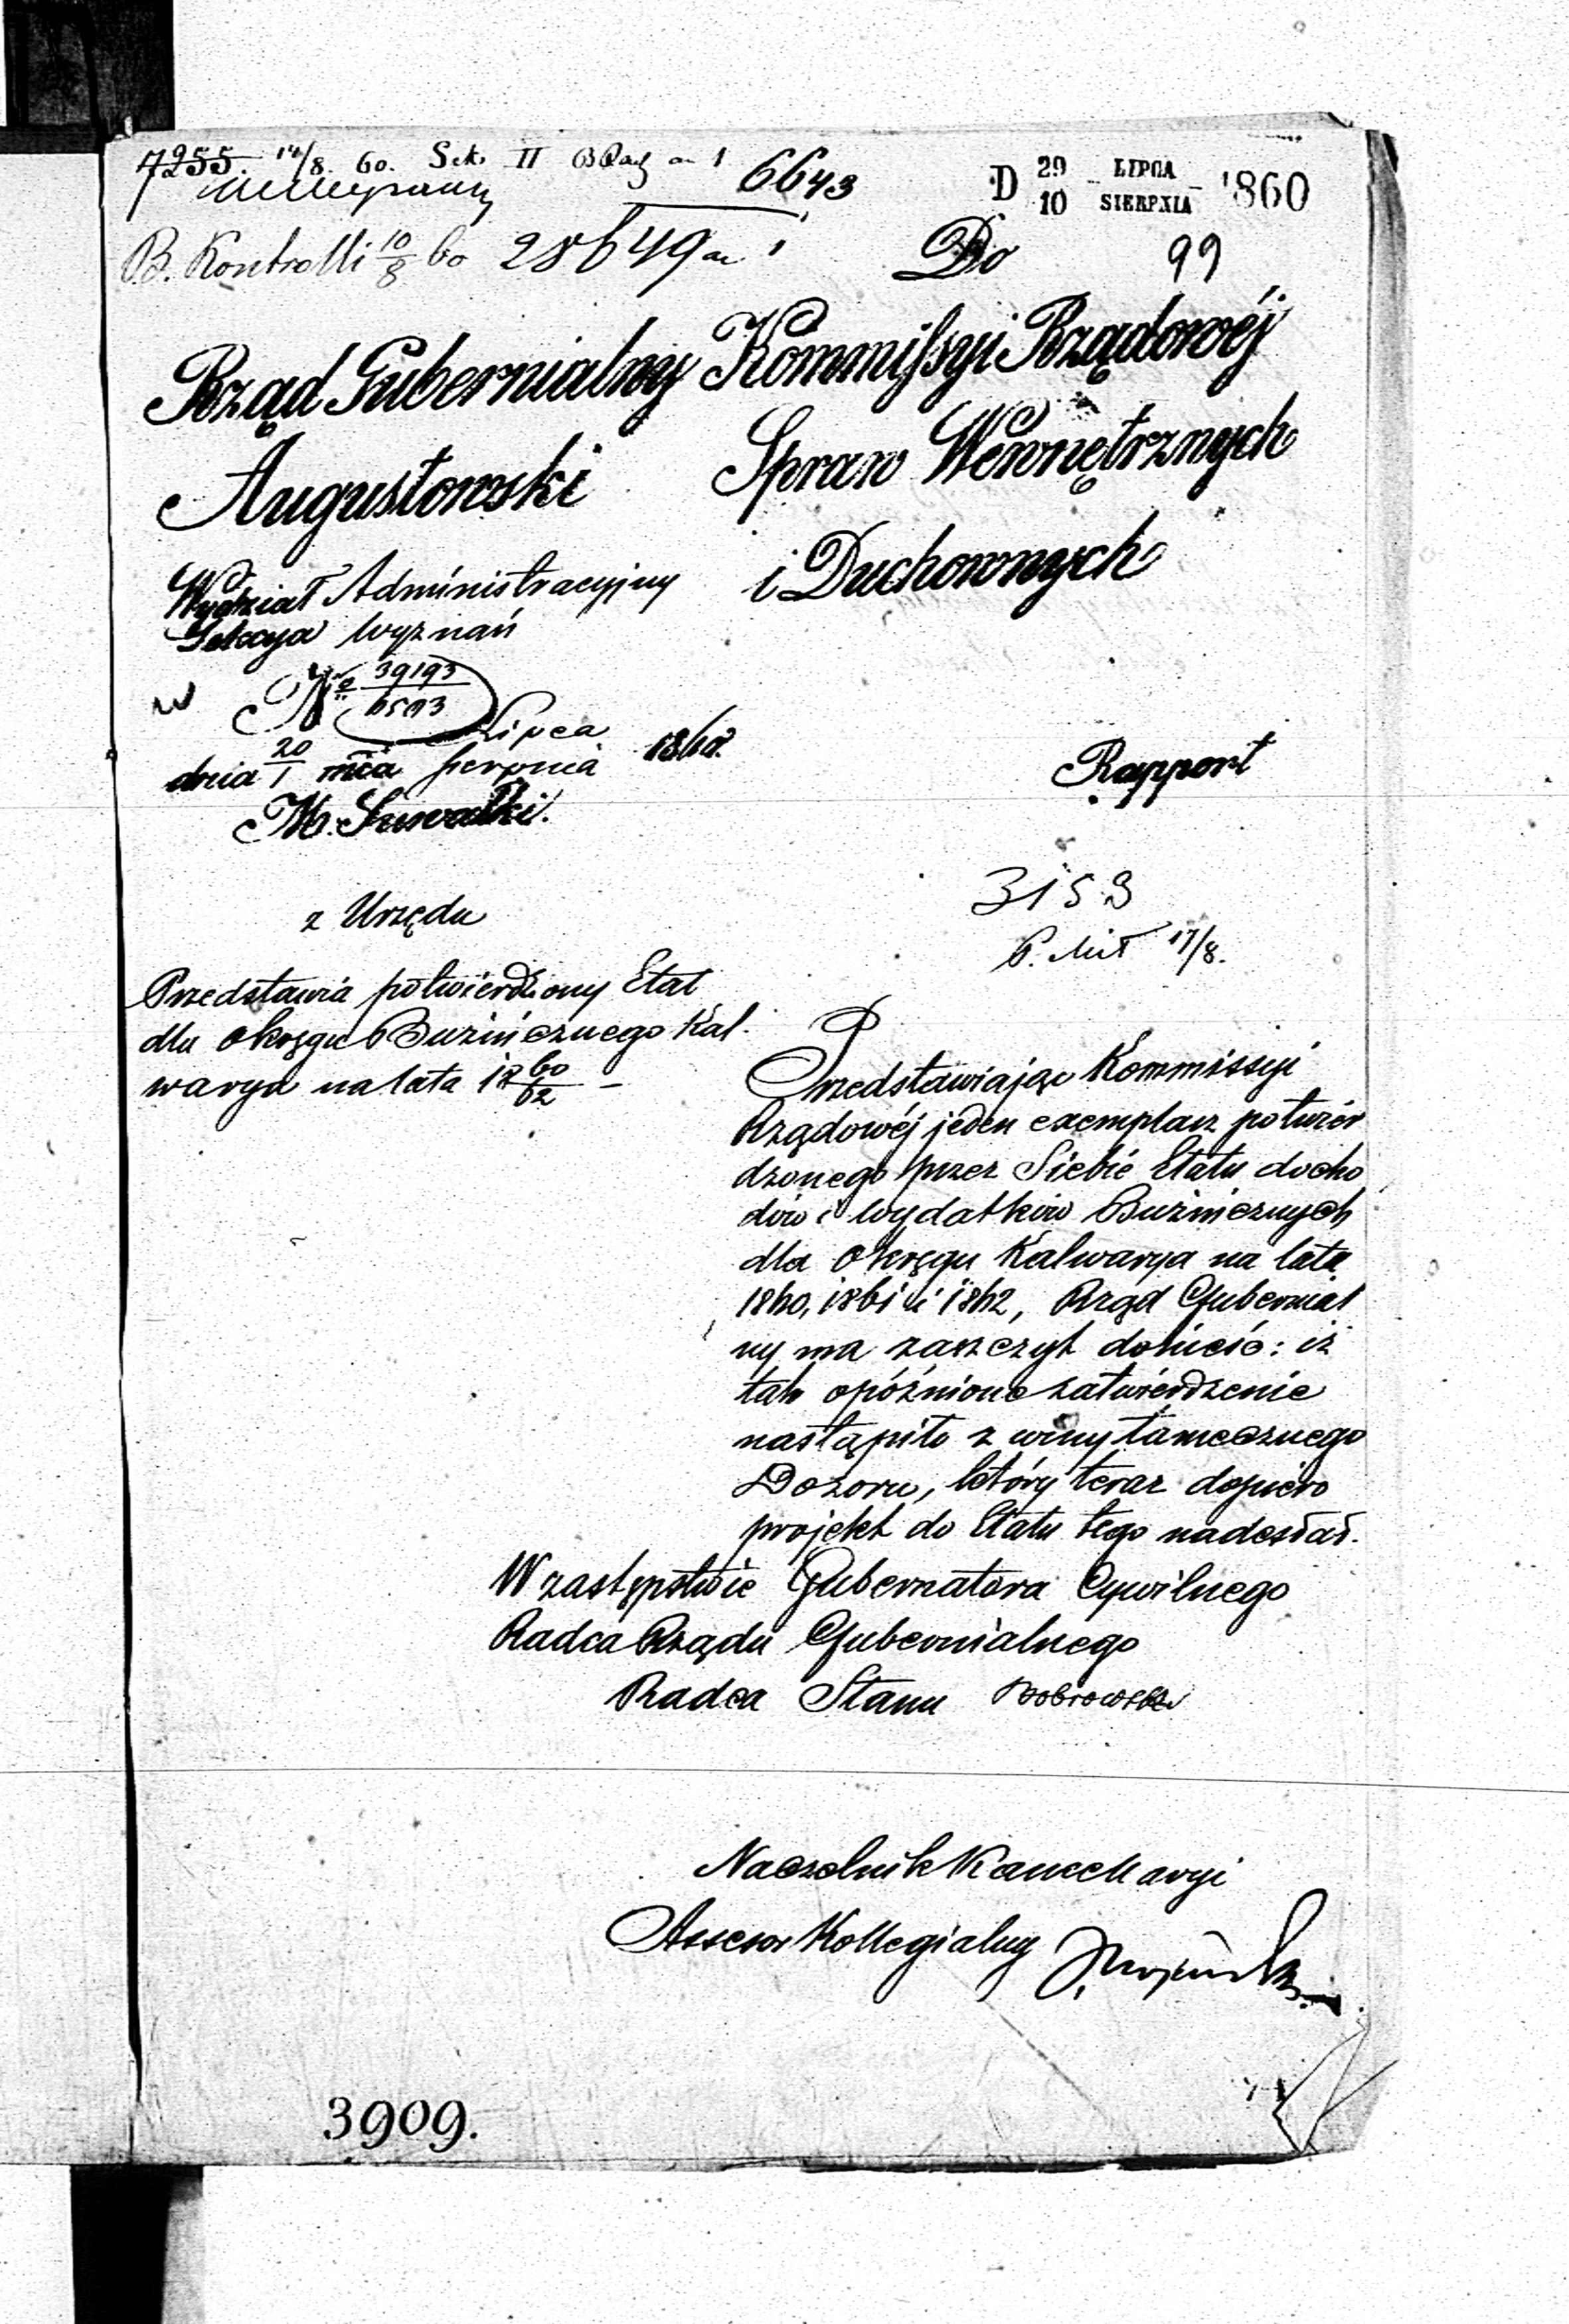 7255. 14/8 60. Sek. II
6643
D 29 LIPCA
10 SIERPNIA 1860
B. Kontrolli 10/8 60 28649
Do
99
Rząd Gubernialny
Augustowski
Kommissyi Rządowéj
Spraw Wewnętrznych
i Duchownych
Wydział Administracyjny
Sekcya Wyznań
No 39193/6593
dnia 20/1 mca Lipca/Sierpnia 1860.
M. Suwałki.
Rapport
3153
17/8.
z Urzędu
Przedstawia potwierdzony Etat
dla okręgu Bużnicznego Kal-
warya na lata 1860/62 –
Przedstawiając Kommissyi
Rządowéj jeden exemplarz potwier
dzonego przez Siebie Etatu docho
dów i wydatków Bużnicznych
dla okręgu Kalwarya na lata
1860, 1861 i 1862, Rząd Gubernial
ny ma zaszczyt donieść: iż
tak opóźnione zatwierdzenie
nastąpiło z winy tamecznego
Dozoru, który teraz dopiero
projekt do Etatu tego nadesłał.
W zastępstwie Gubernatora Cywilnego
Radca Rządu Gubernialnego
Radca Stanu Dobrowolski
Naczelnik Kancellaryi
Assesor Kollegialny
3909.